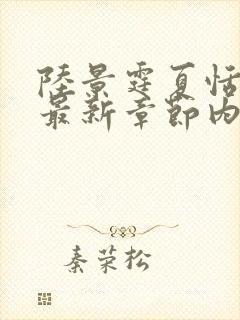 陸景霆夏恬
最新章節内
秦荣松